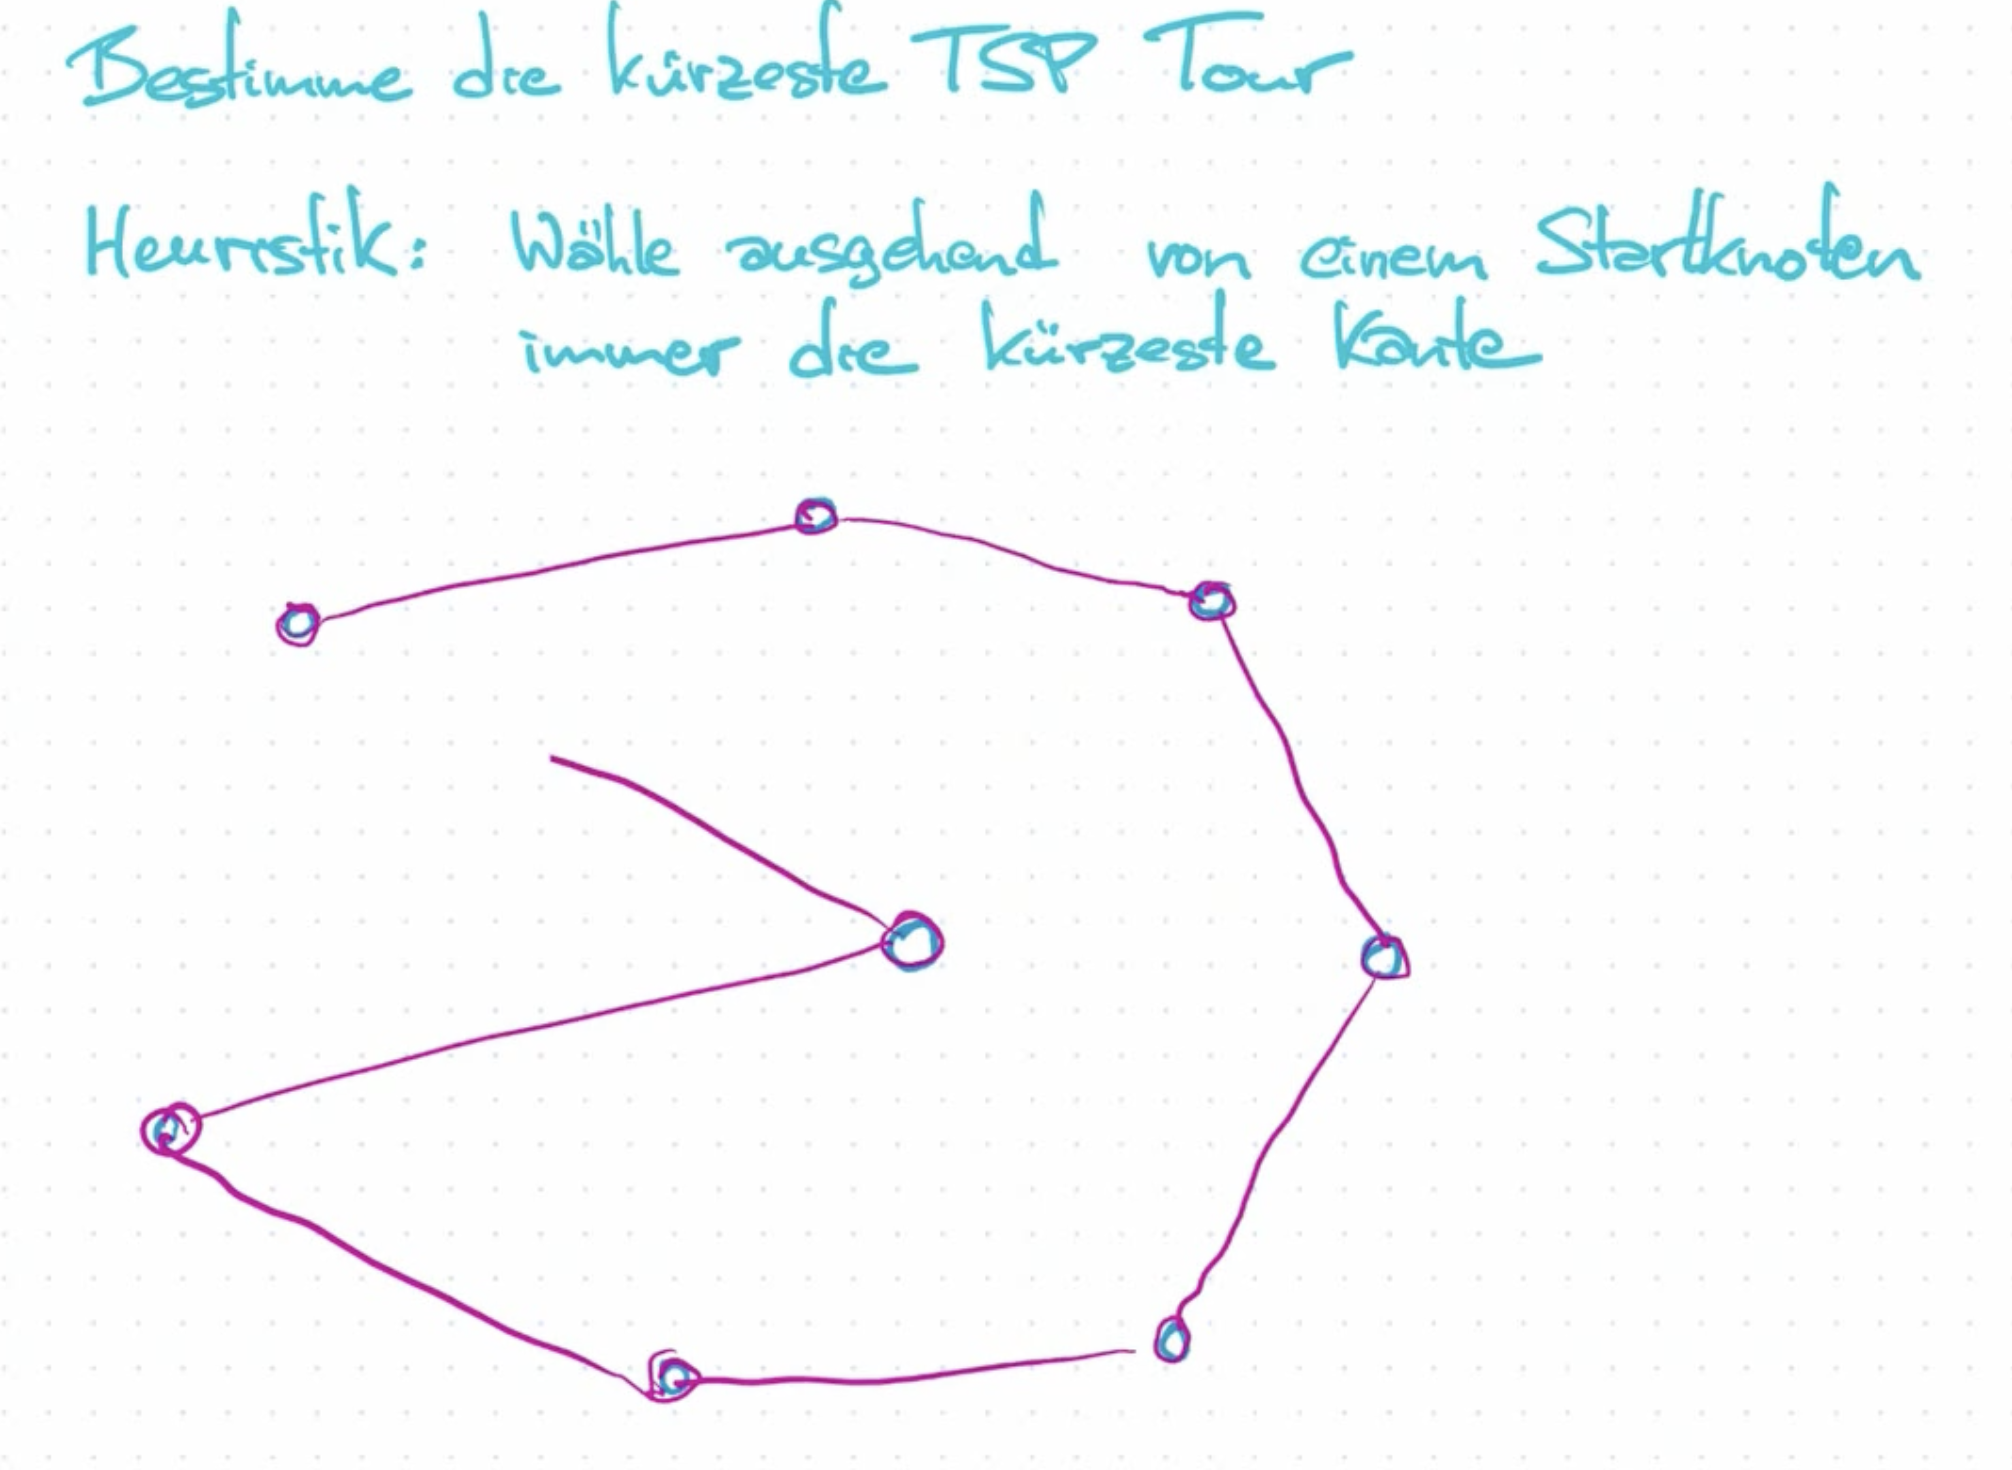 Bestimme die kürzeste TSP Tour
Heuristik: Wähle ausgehend von einem Startknoten
immer die kürzeste Kante